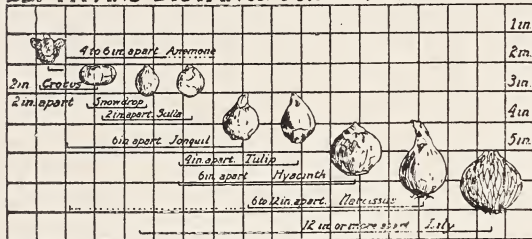 1in.
4 to 6in. apart Anemone
2in.
2in Crocus
3in.
2in. apart Snowdrop
2in. apart Scilla
4in
5in.
6in apart Jonquil
4in. apart. Tulip
6in. apart Hyacinth
6 to 12in. apart. Narcissus
12 in. or more apart Lily